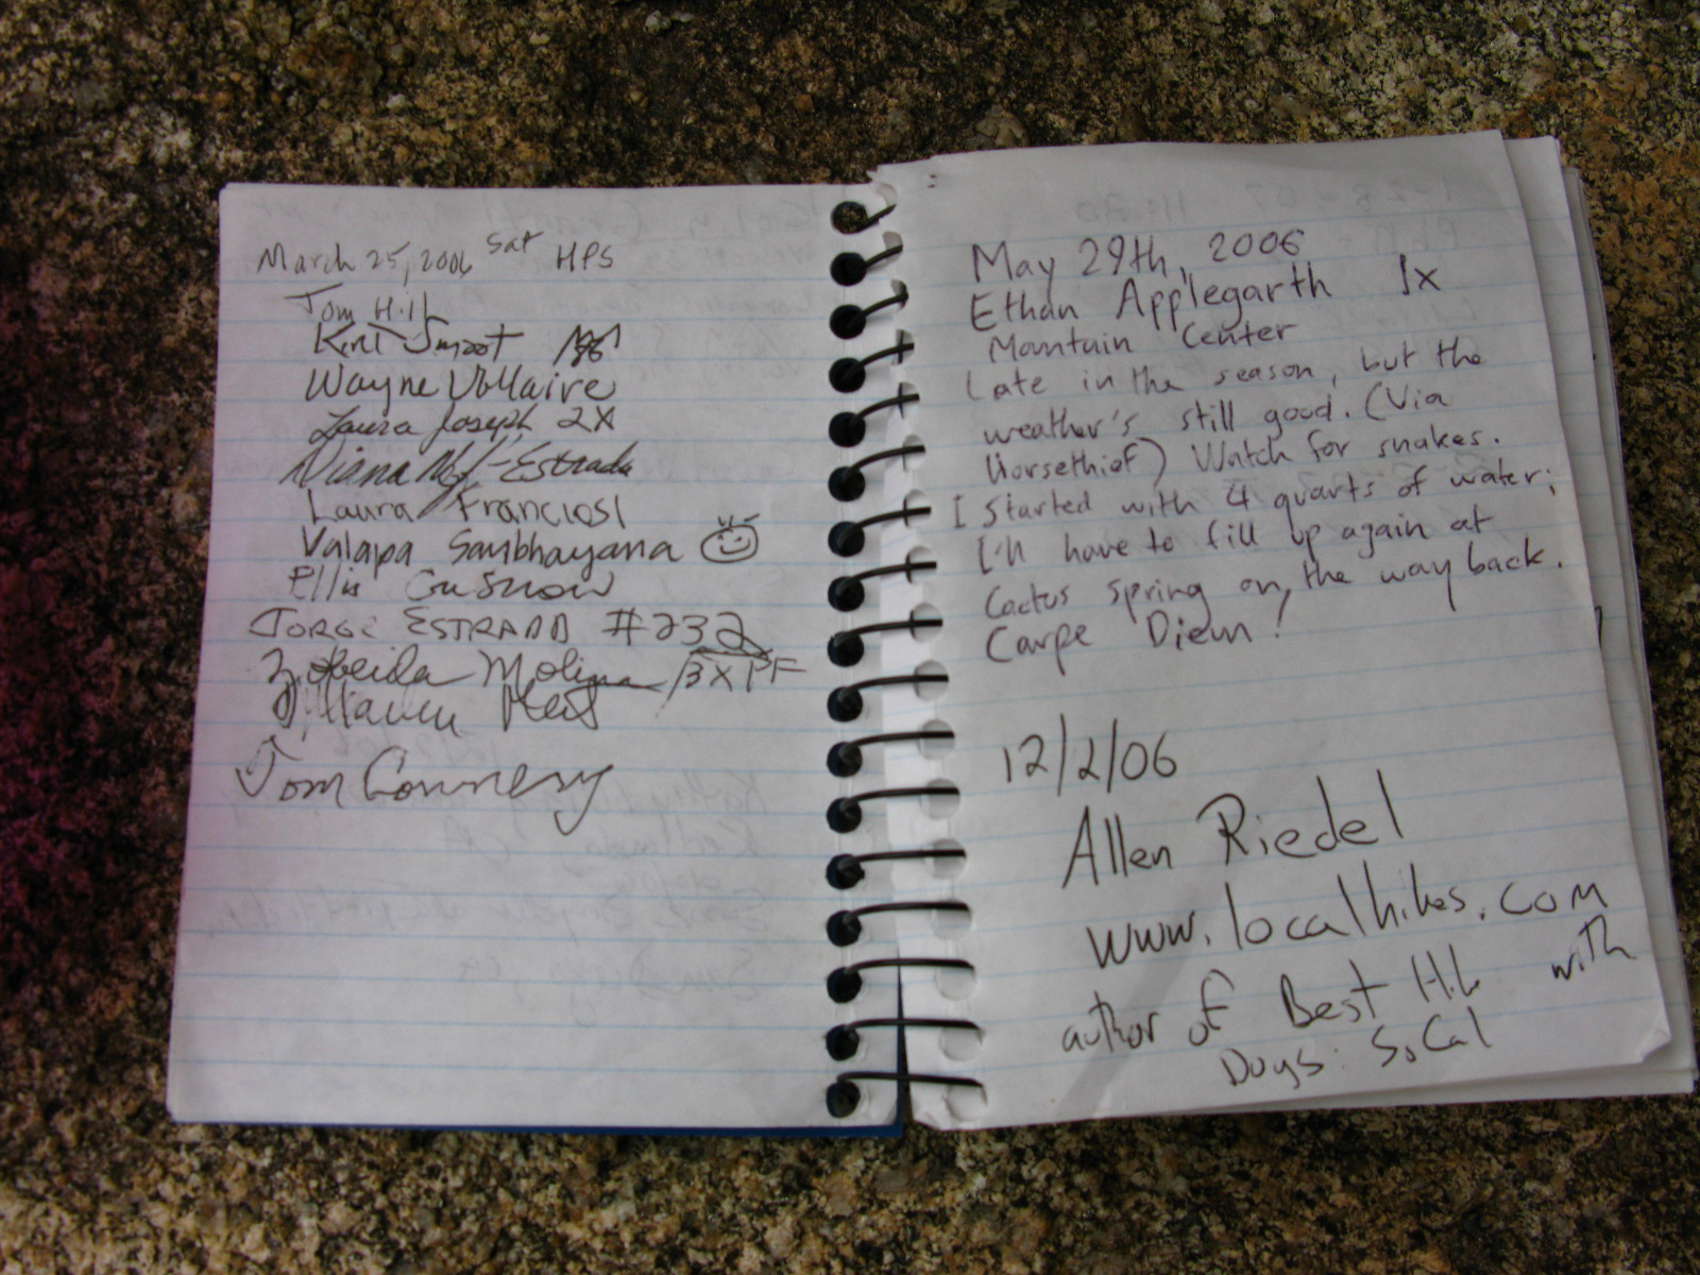 March 25, 2006 Sat HPS
Tom Hill
Kent Smoot
Wayne Vollaire
Laura Joseph 2X
Diana Estrada
Laura Franciosi
Valapa Sambhayana
Ellis
JORGE ESTRADA #232
Zobeida Molina 3X PF
Tom Connery
May 29th, 2006
Ethan Applegarth 1x
Mountain Center
Late in the season, but the
weather's still good. (Via
Horsethief) Watch for snakes.
I started with 4 quarts of water;
I'll have to fill up again at
Cactus Spring on the way back.
Carpe Diem!
12/2/06
Allen Riedel
www.localhikes.com
author of Best with
Dogs: SoCal